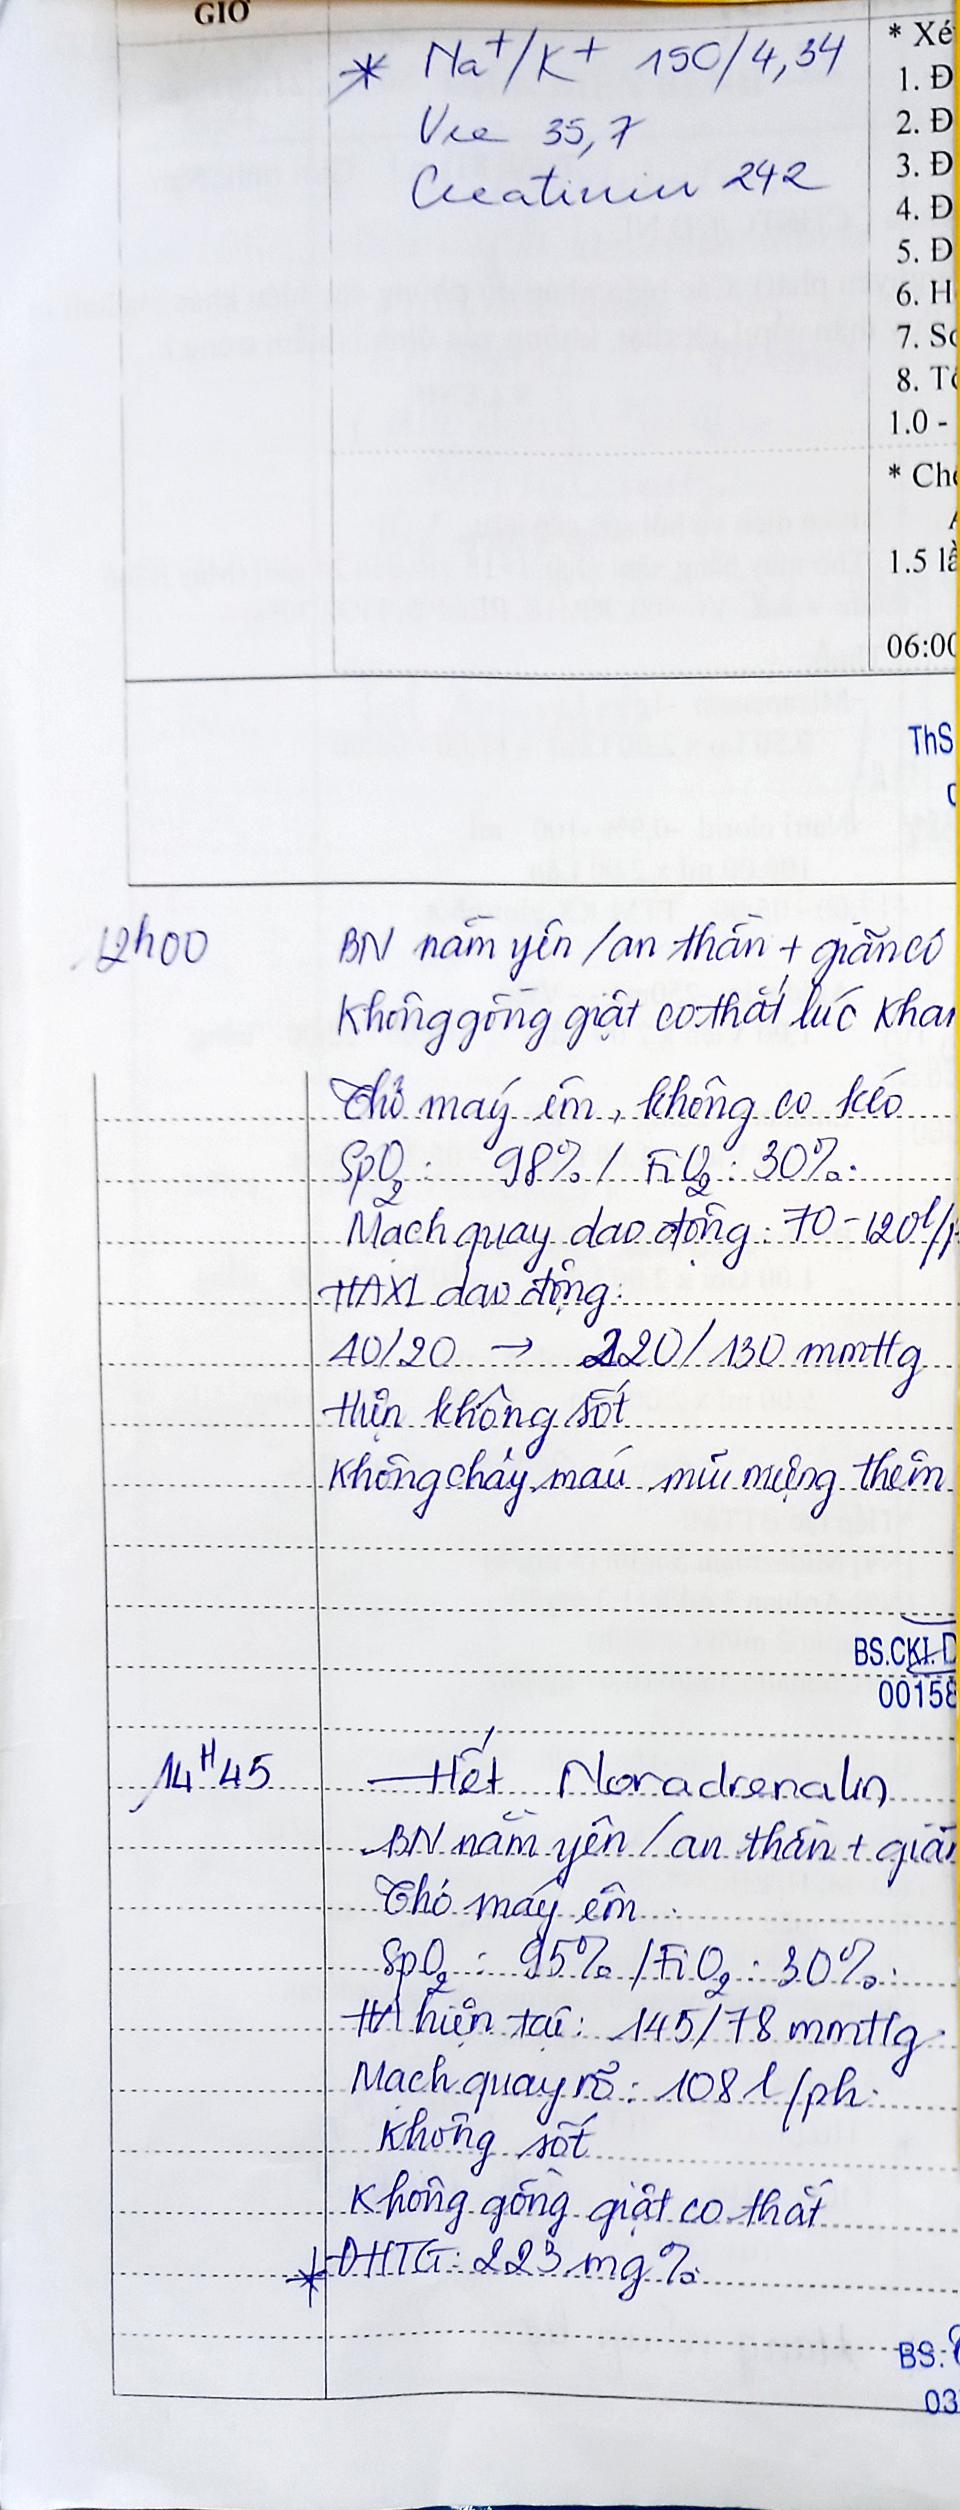 GIỜ
* Na⁺/K⁺ 150/4,34
Ure 35,7
Creatinin 242
* Xé
1. Đ
2. Đ
3. Đ
4. Đ
5. Đ
6. H
7. Sơ
8. Tổ
1.0 -
* Chế
1.5 lầ
06:00
ThS
12h00 BN nằm yên / an thần + giãn cơ
Không gồng giật co thắt lúc khám
Thở máy êm, không co kéo
SpO₂ : 98% / FiO₂ : 30%.
Mạch quay dao động : 70 - 120 l/p
HAXL dao động:
40/20 → 220/130 mmHg
Hiện không sốt
Không chảy máu mũi miệng thêm
BS.CKI.
00158
14H45 - Hết Noradrenalin
BN nằm yên / an thần + giãn
Thở máy êm
SpO₂ : 95% / FiO₂ : 30%.
HA hiện tại : 145/78 mmHg
Mạch quay rõ : 108 l/ph.
Không sốt
Không gồng giật co thắt
* ĐHTG: 223 mg%
BS.
03